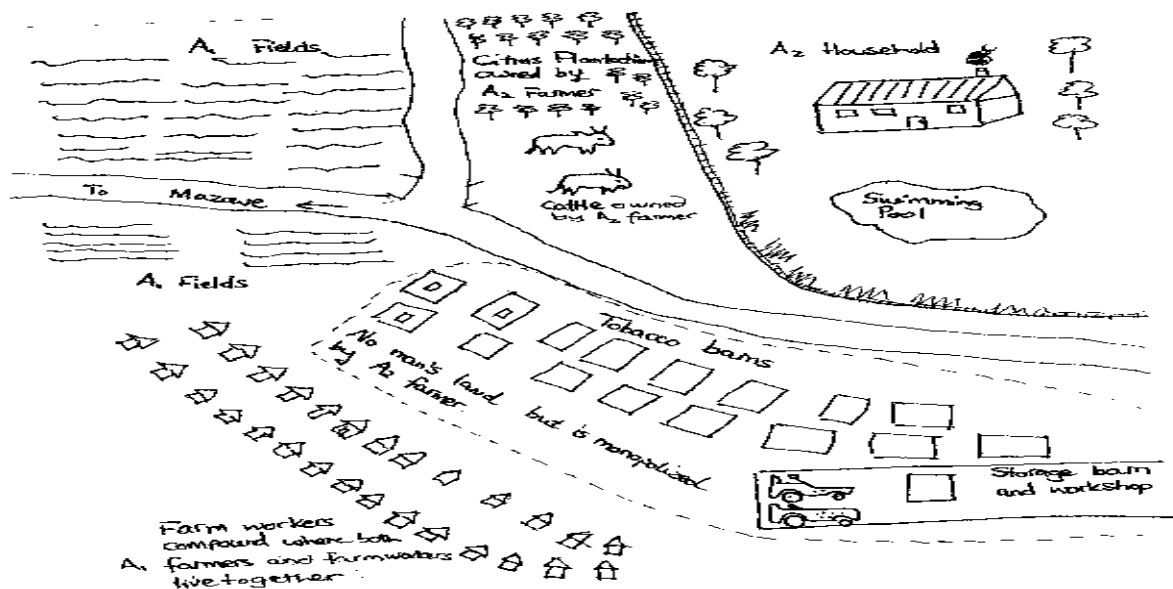 A1 Fields
Citrus Plantation
owned by
A2 Farmer
A2 Household
To Mazowe
Cattle owned
by A2 farmer
Swimming
Pool
A1 Fields
Tobacco barns
No man's land but is monopolized
by A2 farmer
Storage barn
and workshop
Farm workers
compound where both
A1 farmers and farmworkers
live together